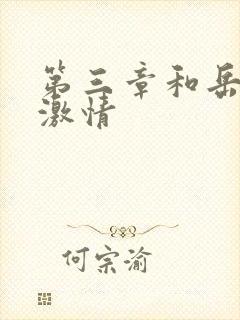 第三章和岳
激情
何宗渝